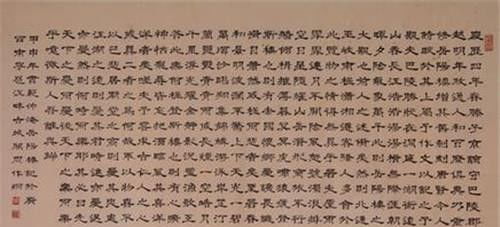 慶曆四年春滕子京謫守巴陵郡
越明年政通人和百廢俱興乃重
修岳陽樓增其舊制刻唐賢今人
詩賦於其上屬予作文以記之予
觀夫巴陵勝狀在洞庭一湖銜遠
山吞長江浩浩湯湯橫無際涯朝
暉夕陰氣象萬千此則岳陽樓之
大觀也前人之述備矣然則北通
巫峽南極瀟湘遷客騷人多會於
此覽物之情得無異乎若夫霪雨
霏霏連月不開陰風怒號濁浪排
空日星隱曜山岳潛形商旅不行
檣傾楫摧薄暮冥冥虎嘯猿啼登
斯樓也則有去國懷鄉憂讒畏譏
滿目蕭然感極而悲者矣至若春
和景明波瀾不驚上下天光一碧
萬頃沙鷗翔集錦鱗游泳岸芷汀
蘭郁郁青青而或長煙一空皓月
千里浮光躍金靜影沉璧漁歌互
答此樂何極登斯樓也則有心曠
神怡寵辱偕忘把酒臨風其喜洋
洋者矣嗟夫予嘗求古仁人之心
或異二者之為何哉不以物喜不
以己悲居廟堂之高則憂其民處
江湖之遠則憂其君是進亦憂退
亦憂然則何時而樂耶其必曰先
天下之憂而憂後天下之樂而樂
乎噫微斯人吾誰與歸
甲申年書范仲淹岳陽樓記於廣
西南寧邕江畔古城閣周作